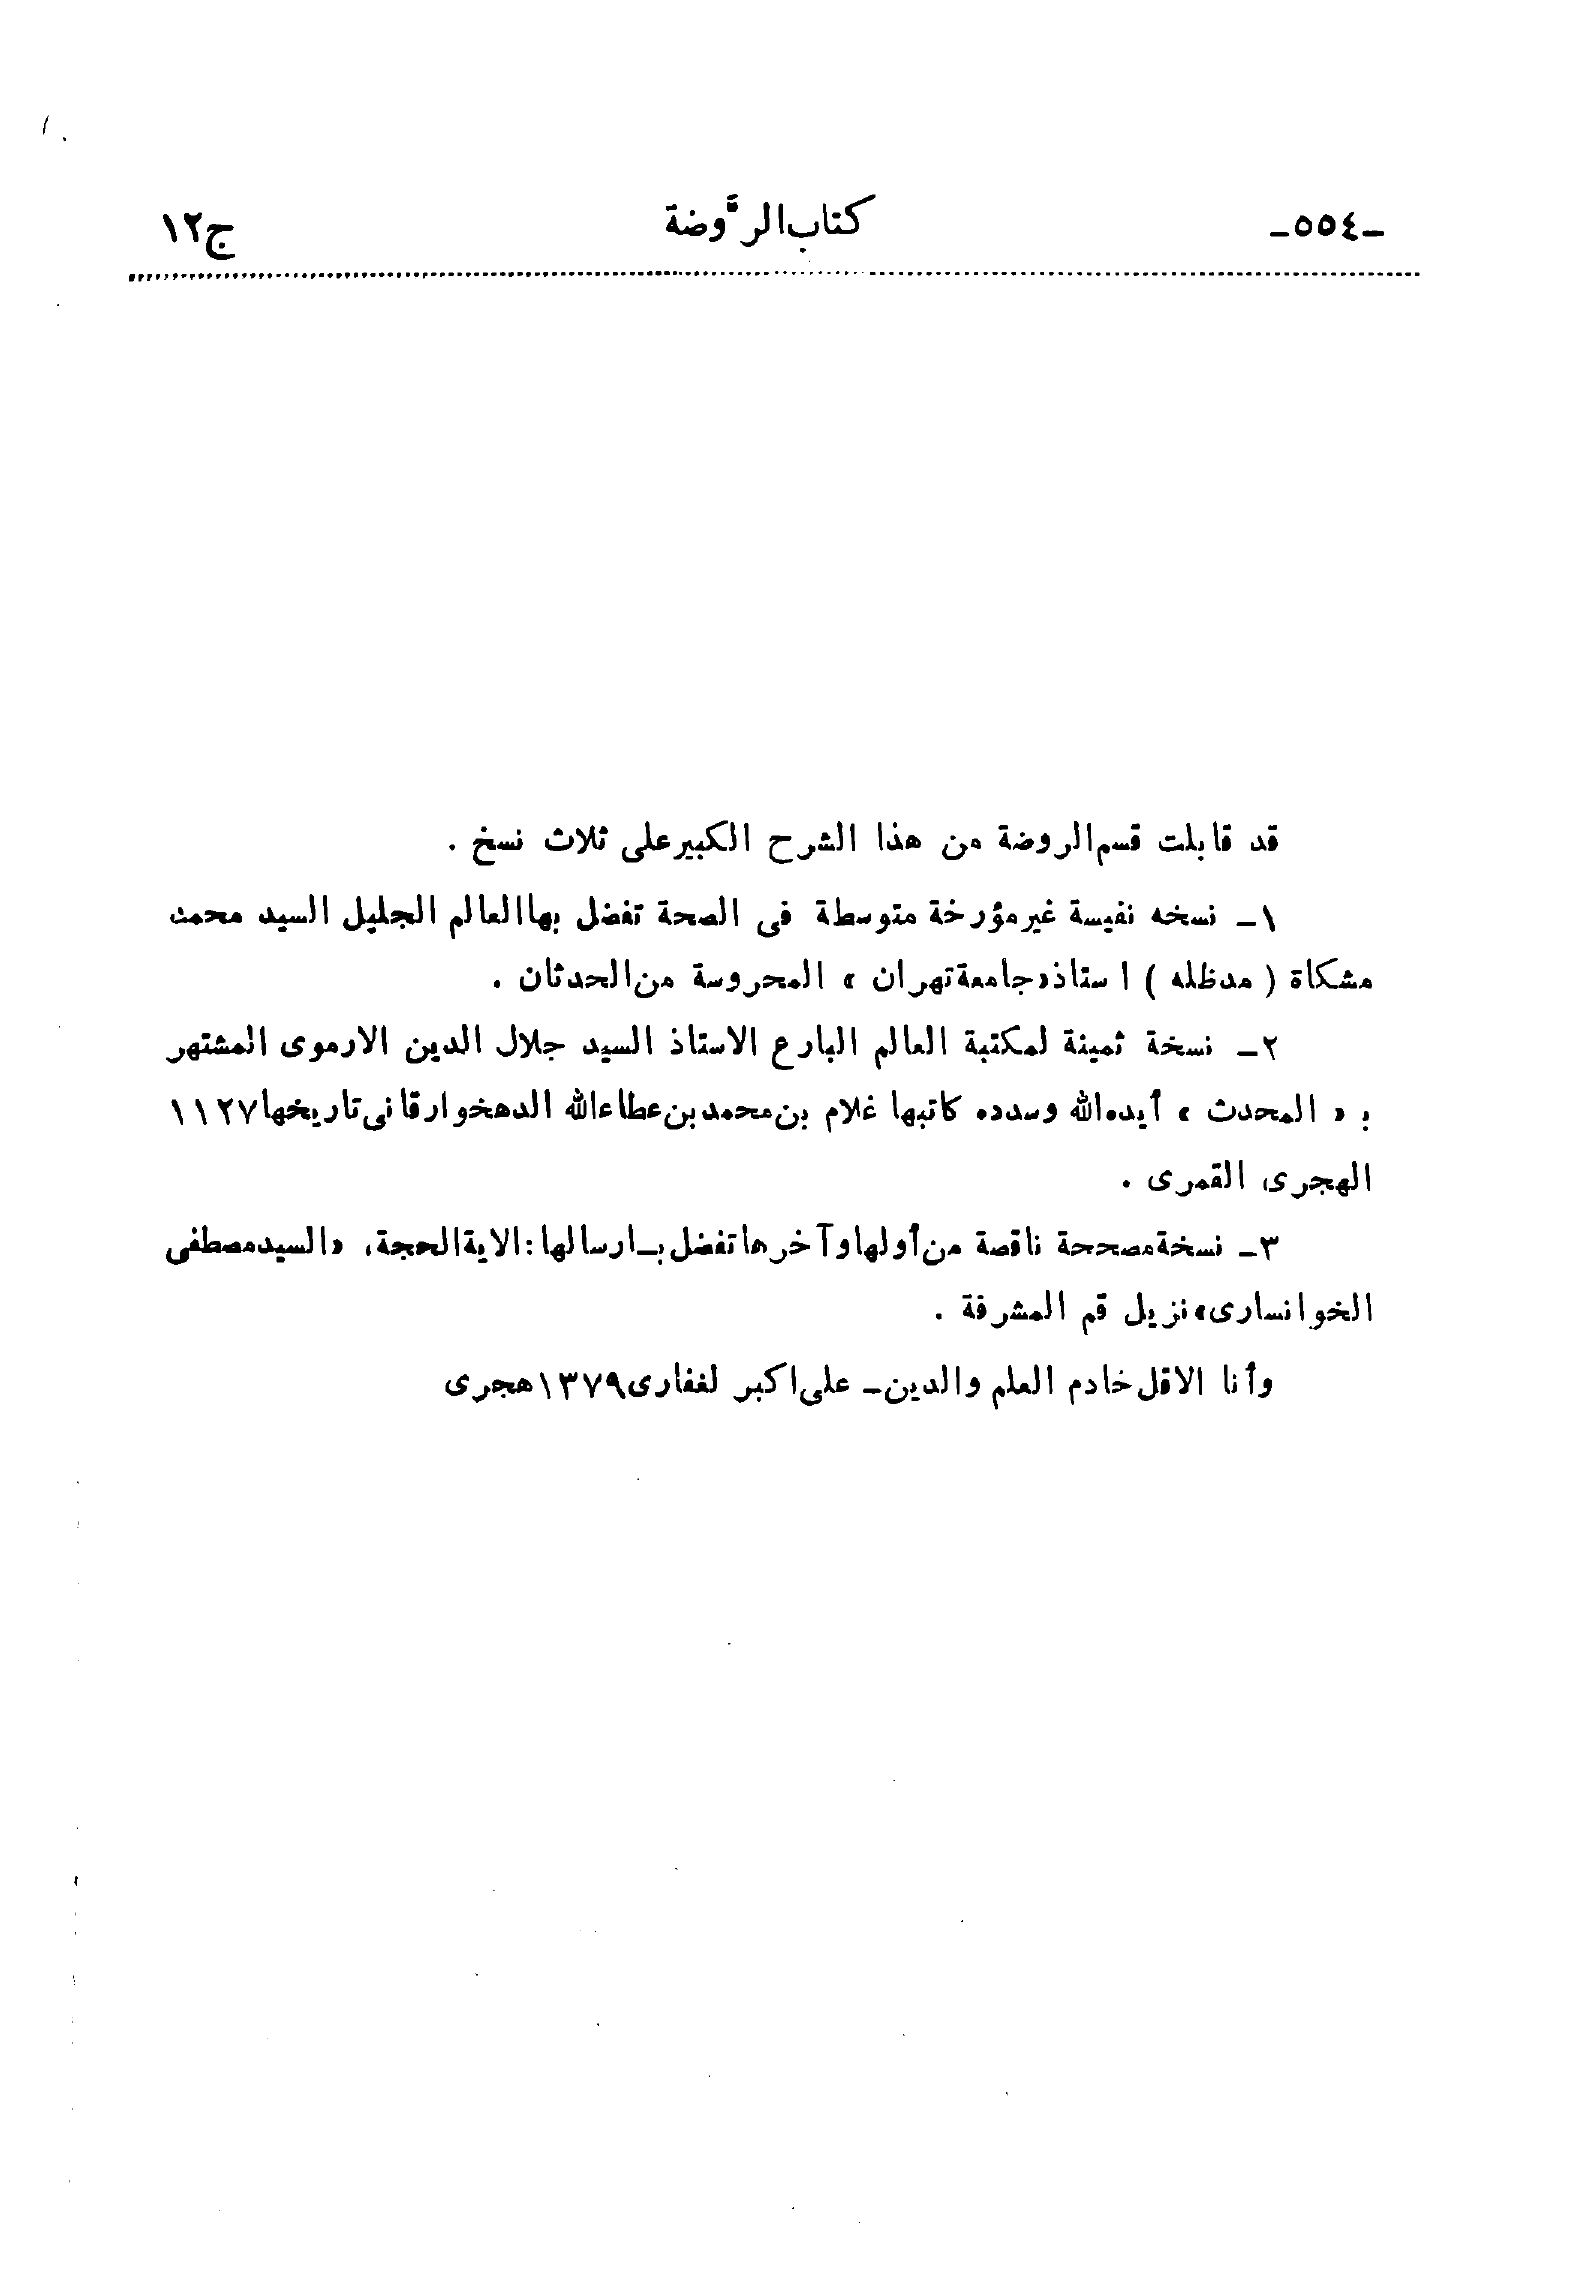 -٥٥٤- كتاب الروَّضة ج١٢
قد قابلت قسم الروضة من هذا الشرح الكبير على ثلاث نسخ .
١- نسخه نفيسة غير مؤرخة متوسطة فى الصحة تفضل بها العالم الجليل السيد محمد
مشكاة ( مدظله ) استاذ «جامعة تهران » المحروسة من الحدثان .
٢- نسخة ثمينة لمكتبة العالم البارع الاستاذ السيد جلال الدين الارموى المشتهر
ب « المحدث » أيده الله وسدده كاتبها غلام بن محمد بن عطاء الله الدهخوارقانى تاريخها ١١٢٧
الهجرى القمرى .
٣- نسخة مصححة ناقصة من أولها وآخرها تفضل بـارسالها : الاية الحجة، «السيد مصطفى
الخوانسارى» نزيل قم المشرفة .
وأنا الاقل خادم العلم والدين- على اكبر لغفارى ١٣٧٩ هجرى